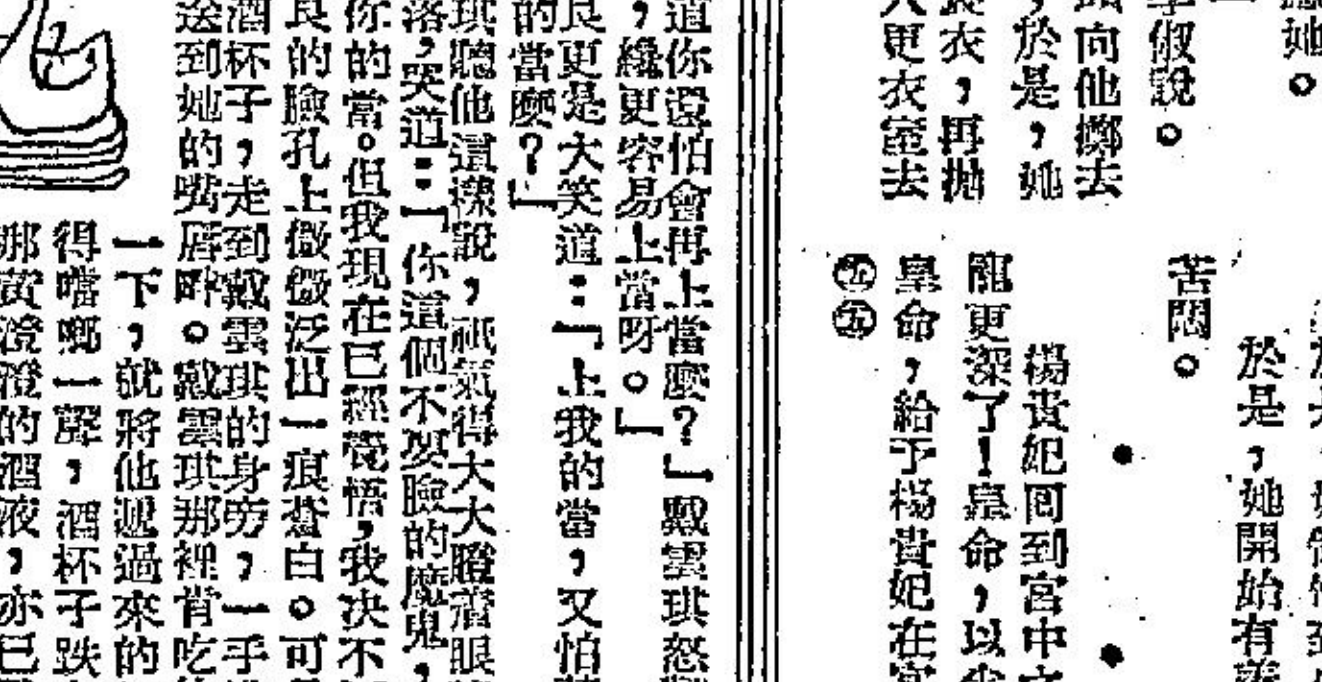 她。
於是，她開始有
苦悶。
說。
向他擲去
，於是，她
楊貴妃回到宮中
衣，再拋
龍更深了！皇命，以
更衣室去
皇命，給下楊貴妃在宮
㊄㊄
道你還怕會再上當麼？」戴雲琪怒
，纔更容易上當呀。」
良更是大笑道：「上我的當，又怕
的當麼？」
琪聽他這樣說，祇氣得大大瞪着眼
落，哭道：「你這個不要臉的魔鬼，
你的當。但我現在已經覺悟，我決不
良的臉孔上微微泛出一痕蒼白。可
酒杯子，走到戴雲琪的身旁，一手
送到她的嘴唇畔。戴雲琪那裡肯吃
一下，就將他遞過來的
得噹啷一聲，酒杯子跌
那黃澄澄的酒液，亦已